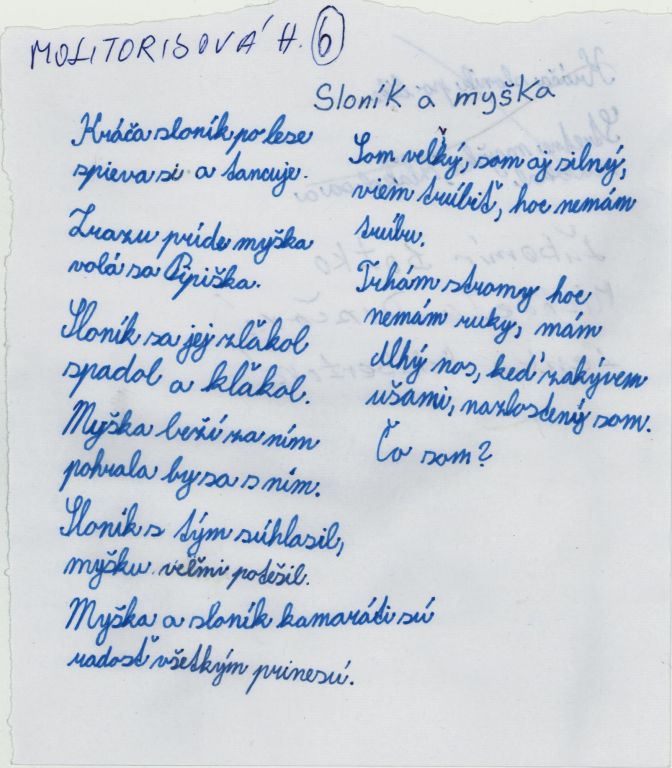 MOLITORISOVÁ H. 6
Sloník a myška
Kráča sloník po lese
spieva si a tancuje.
Zrazu príde myška
volá sa Pipiška.
Sloník sa jej zľakol
spadol a kľakol.
Myška beží za ním
pohrala by sa s ním.
Sloník s tým súhlasil,
myšku veľmi potešil.
Myška a sloník kamaráti sú
radosť všetkým prinesú.
Som veľký, som aj silný,
viem trúbiť, hoc nemám
trúbu.
Trhám stromy hoc
nemám ruky, mám
dlhý nos, keď zakývem
ušami, nazlostený som.
Čo som?